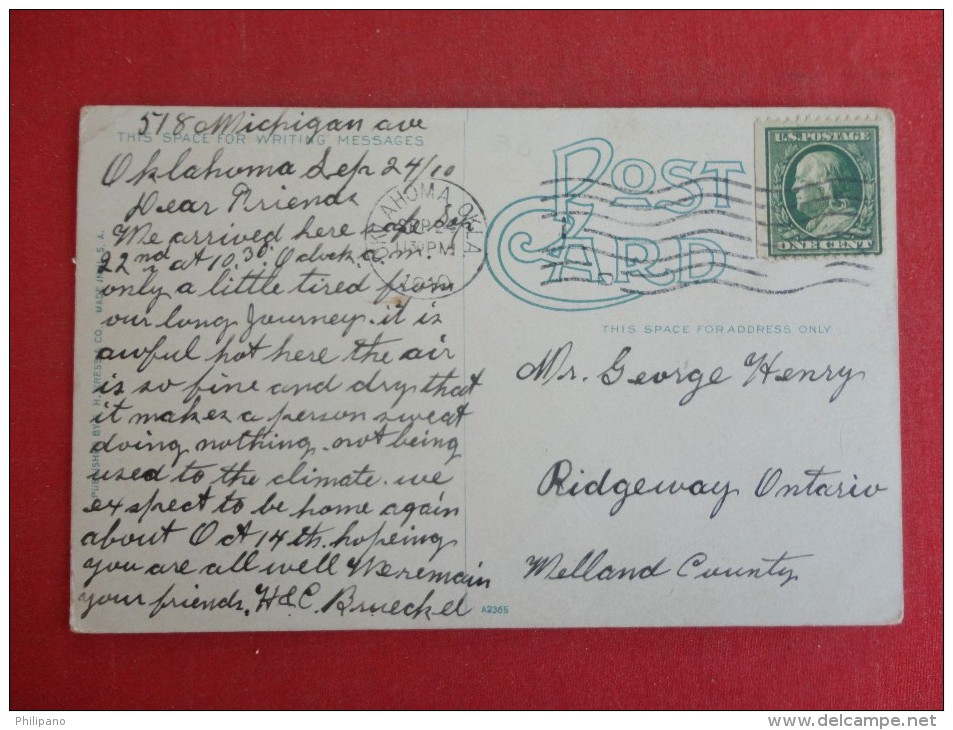 518 Michigan ave
THIS SPACE FOR WRITING MESSAGES
Oklahoma Sep 24/10
Dear Friends
We arrived here safe Sep
22nd at 10.30. O clock a.m.
only a little tired from
our long Journey. it is
awful hot here the air
is so fine and dry that
it makes a person sweat
doing nothing. not being
used to the climate. we
expect to be home again
about Oct 14th. hopeing
you are all well We remain
your friends. H & C. Brueckel
MADE IN U. S. A.
OKLAHOMA, OKLA
SEP 24
PM
1910
POST
CARD
U.S. POSTAGE
ONE CENT
THIS SPACE FOR ADDRESS ONLY
Mr. George Henry
Ridgeway Ontario
Welland County
A2365
Philipano
www.delcampe.net